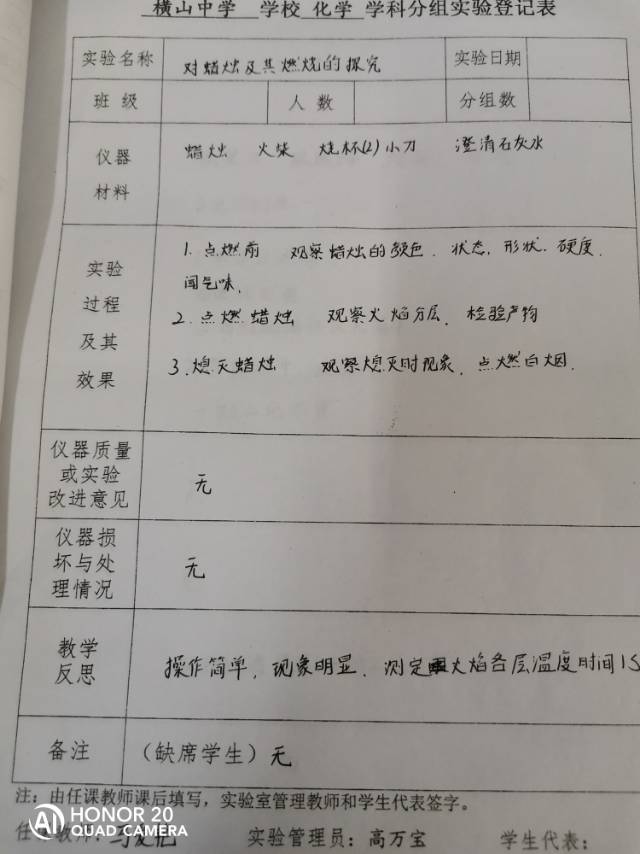 横山中学 学校 化学 学科分组实验登记表
实验名称 对蜡烛及其燃烧的探究 实验日期
班级 人数 分组数
仪器材料 蜡烛 火柴 烧杯(2) 小刀 澄清石灰水
实验过程及其效果
1. 点燃前 观察蜡烛的颜色、状态、形状、硬度、
闻气味、
2. 点燃蜡烛 观察火焰分层、检验产物
3. 熄灭蜡烛 观察熄灭时现象、点燃白烟.
仪器质量
或实验
改进意见
无
仪器损
坏与处
理情况
无
教学
反思
操作简单,现象明显、测定火焰各层温度时间1S
备注 (缺席学生) 无
注:由任课教师课后填写,实验室管理教师和学生代表签字。
实验管理员:高万宝 学生代表:
HONOR 20
AI QUAD CAMERA